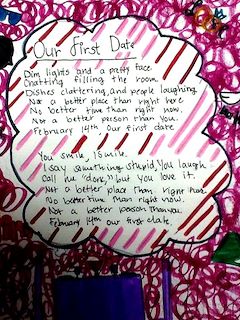 Our First Date
Dim lights and a pretty face
Chatting filling the room.
Dishes clattering, and people laughing
Not a better place than right here
No better time than right now.
Not a better person than you.
February 14th Our first date
You smile, I smile.
I say something stupid, You laugh
Call me "dork," but you love it.
Not a better place than right here
No better time than right now.
Not a better person than you.
February 14th our first date.